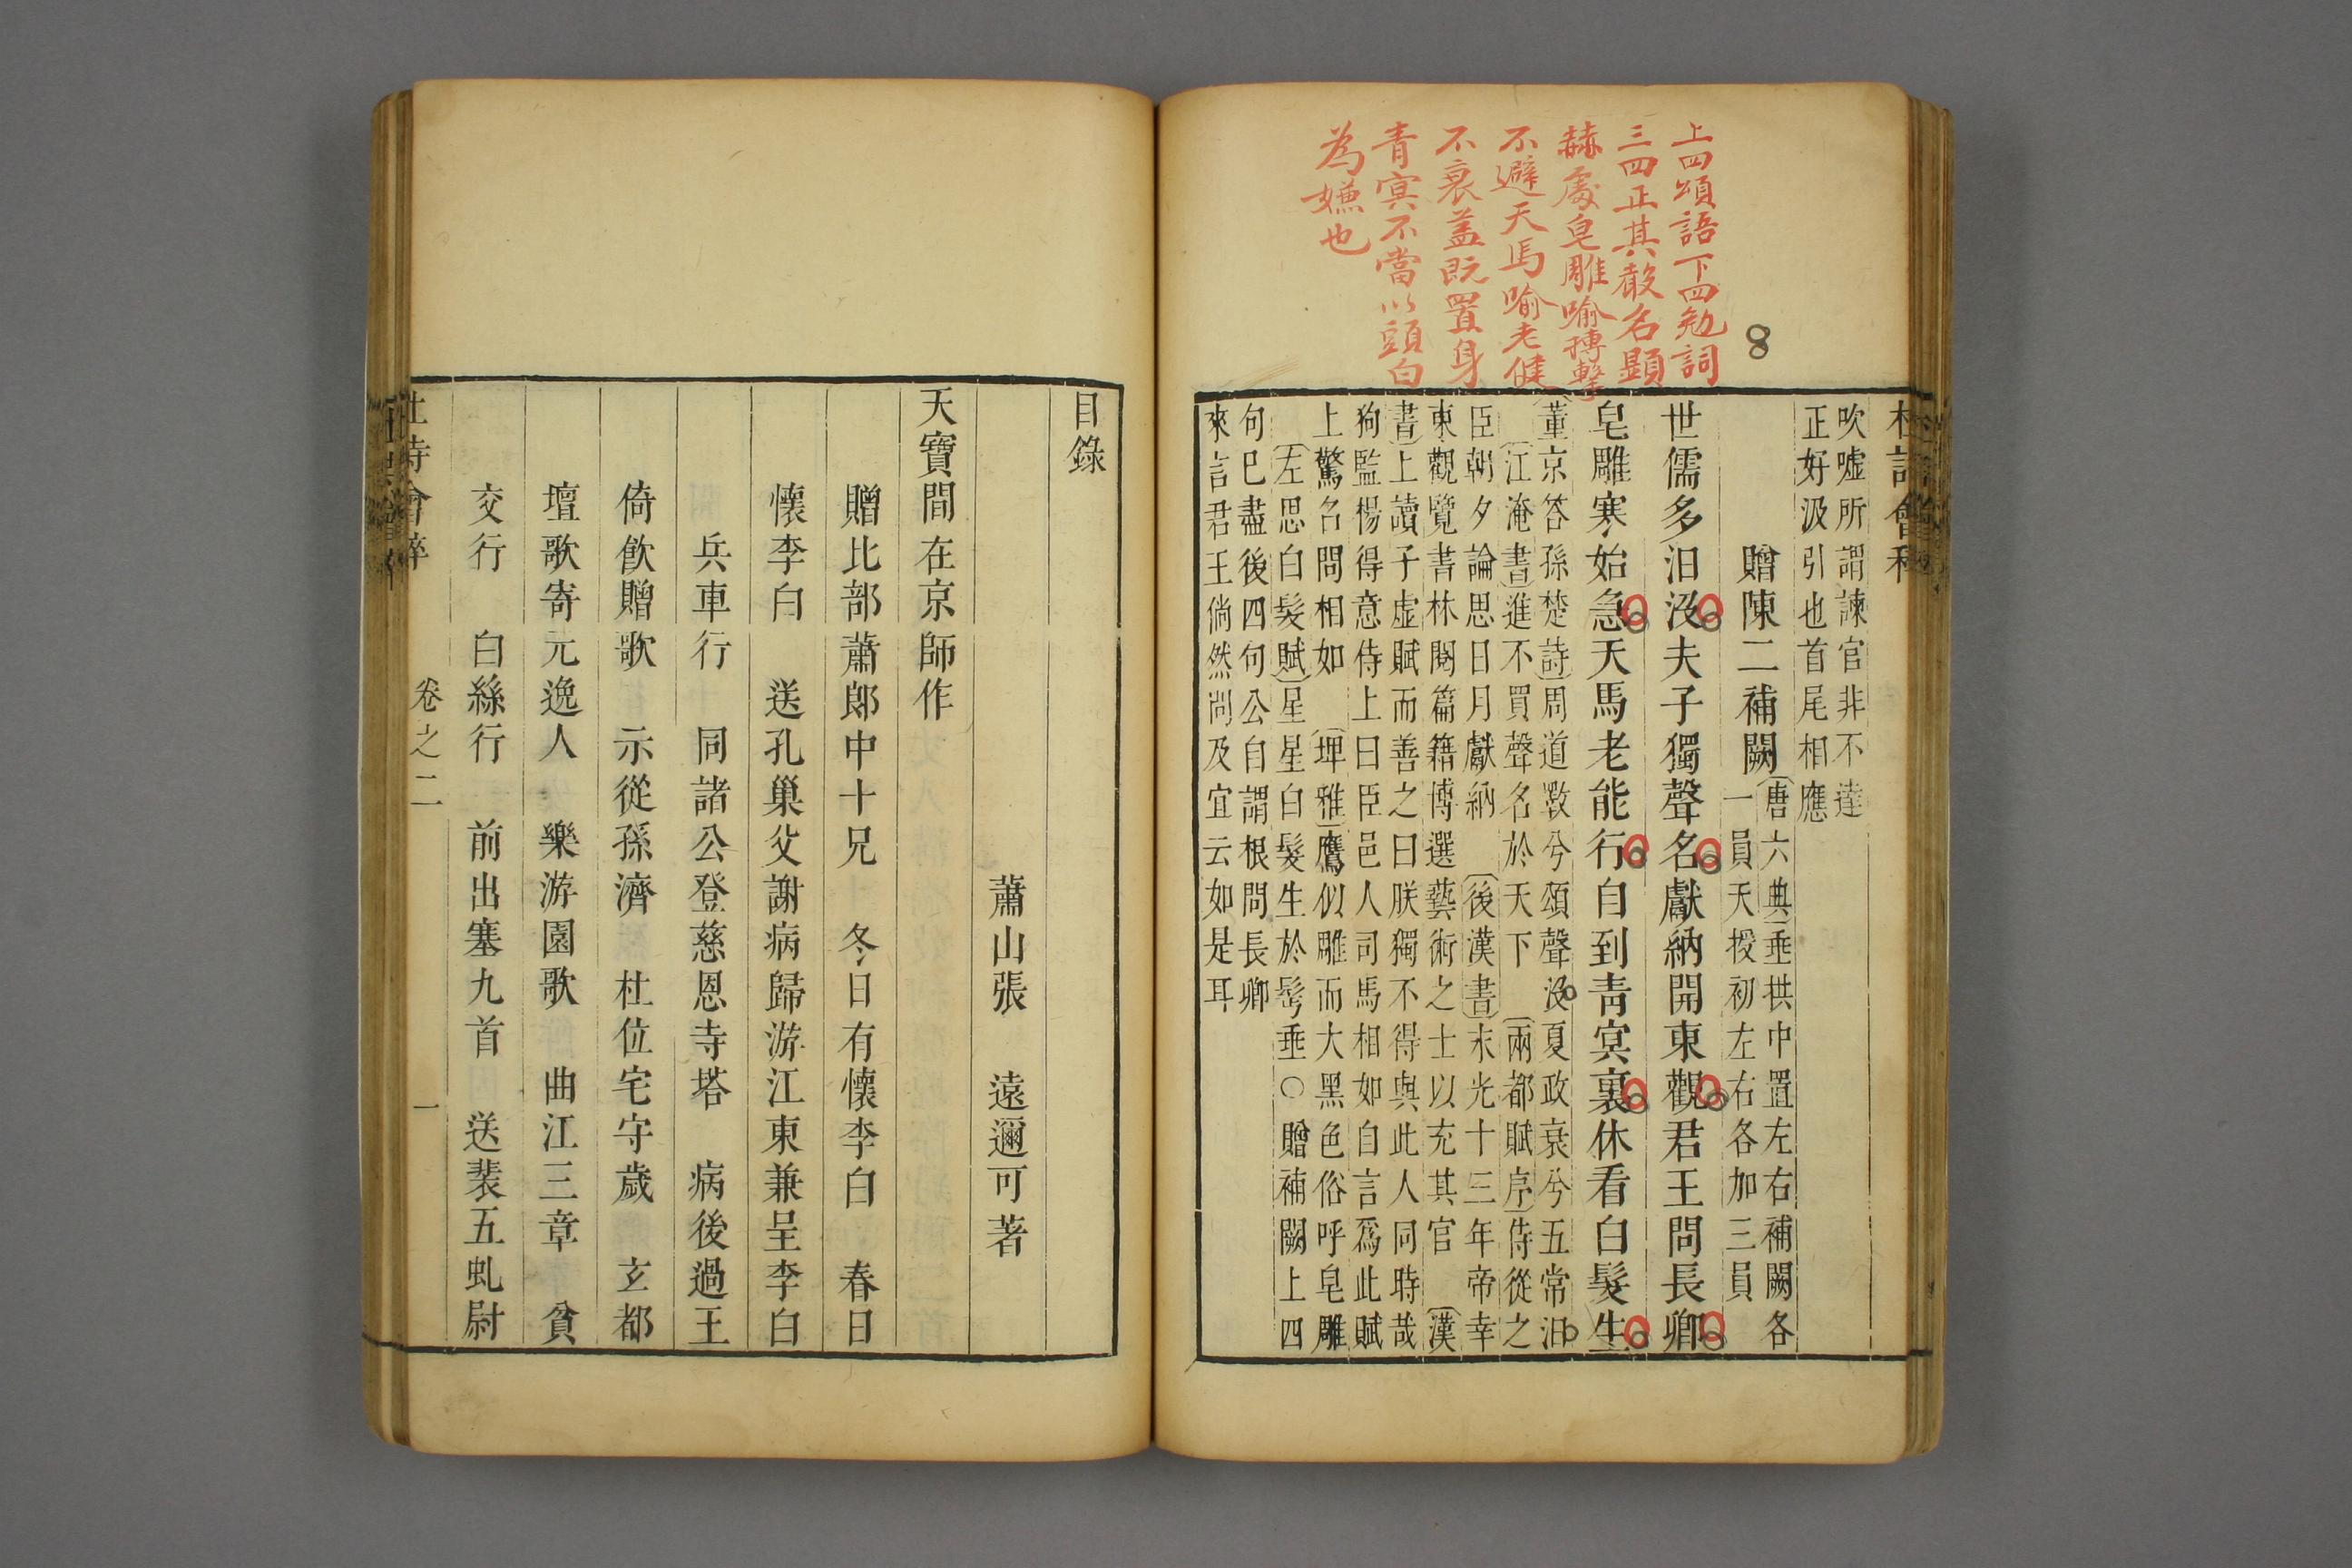 上四頌語下四勉詞
三四正其聲名顯
赫處皂雕喻摶擊
不避天馬喻老健
不衰蓋既置身
青冥不當以頭白
為嫌也
8
杜詩會稡
吹噓所謂諫官非不達
正好汲引也首尾相應
贈陳二補闕
〔唐六典〕垂拱中置左右補闕各
一員天授初左右各加三員
世儒多汩沒夫子獨聲名獻納開東觀君王問長卿
皂雕寒始急天馬老能行自到靑冥裏休看白髮生
〔董京答孫楚詩〕周道斁兮頌聲沒夏政衰兮五常汩
〔江淹書〕進不買聲名於天下 〔兩都賦序〕侍從之
臣朝夕論思日月獻納 〔後漢書〕永光十三年帝幸
東觀覽書林閱篇籍博選藝術之士以充其官 〔漢
書〕上讀子虛賦而善之曰朕獨不得與此人同時哉
狗監楊得意侍上曰臣邑人司馬相如自言爲此賦
上驚名問相如 〔埤雅〕鷹似雕而大黑色俗呼皂雕
〔左思白髮賦〕星星白髮生於鬂垂○贈補闕上四
句巳盡後四句公自謂根問長卿
來言君王倘然尚及宜云如是耳
目錄
蕭山張 遠邇可著
天寶間在京師作
贈比部蕭郎中十兄 冬日有懷李白 春日
懷李白 送孔巢父謝病歸游江東兼呈李白
兵車行 同諸公登慈恩寺塔 病後過王
倚飲贈歌 示從孫濟 杜位宅守歲 玄都
壇歌寄元逸人 樂游園歌 曲江三章 貧
交行 白絲行 前出塞九首 送裴五虬尉
杜詩會稡 卷之二 一